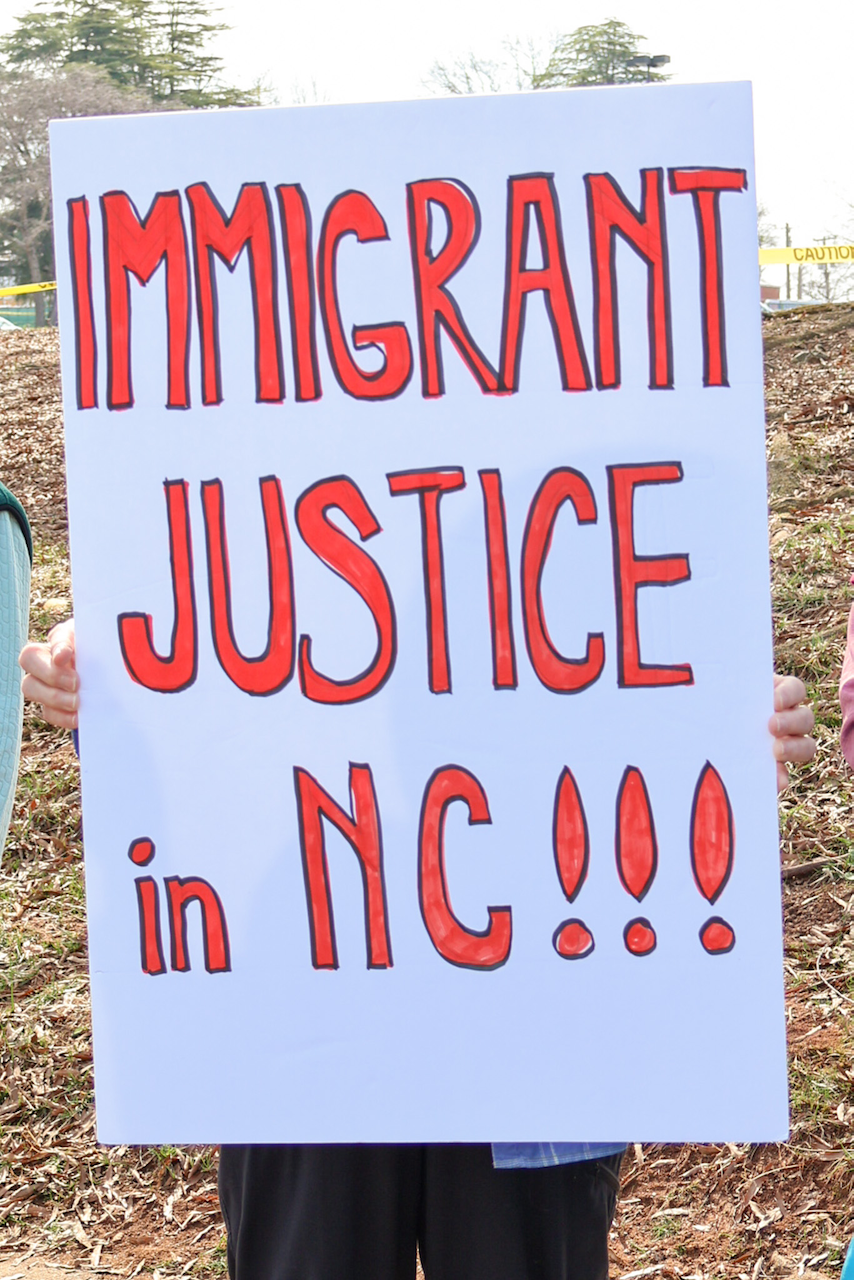 IMMIGRANT
JUSTICE
in NC!!!
CAUTION